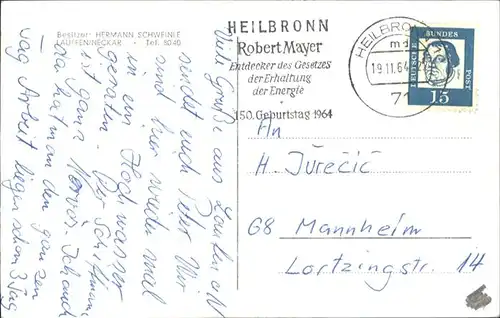 Besitzer: HERMANN SCHWEIKLE
LAUFFEN/NECKAR - Tel. 8040
HEILBRONN
Robert Mayer
Entdecker des Gesetzes
der Erhaltung
der Energie
150. Geburtstag 1964
HEILBRONN
19.11.64
71
DEUTSCHE
BUNDES
POST
15
Viele Grüße aus Lauffen a/N
sendet euch Peter. Wir
sind hier wieder mal
in ein Hochwasser
geraten. Der Schiffmann
ist ganz nervös. Ich auch
da hat man den ganzen
Tag Arbeit liegen schon 3 Tag
An
H. Jurečić
68 Mannheim
Lortzingstr. 14